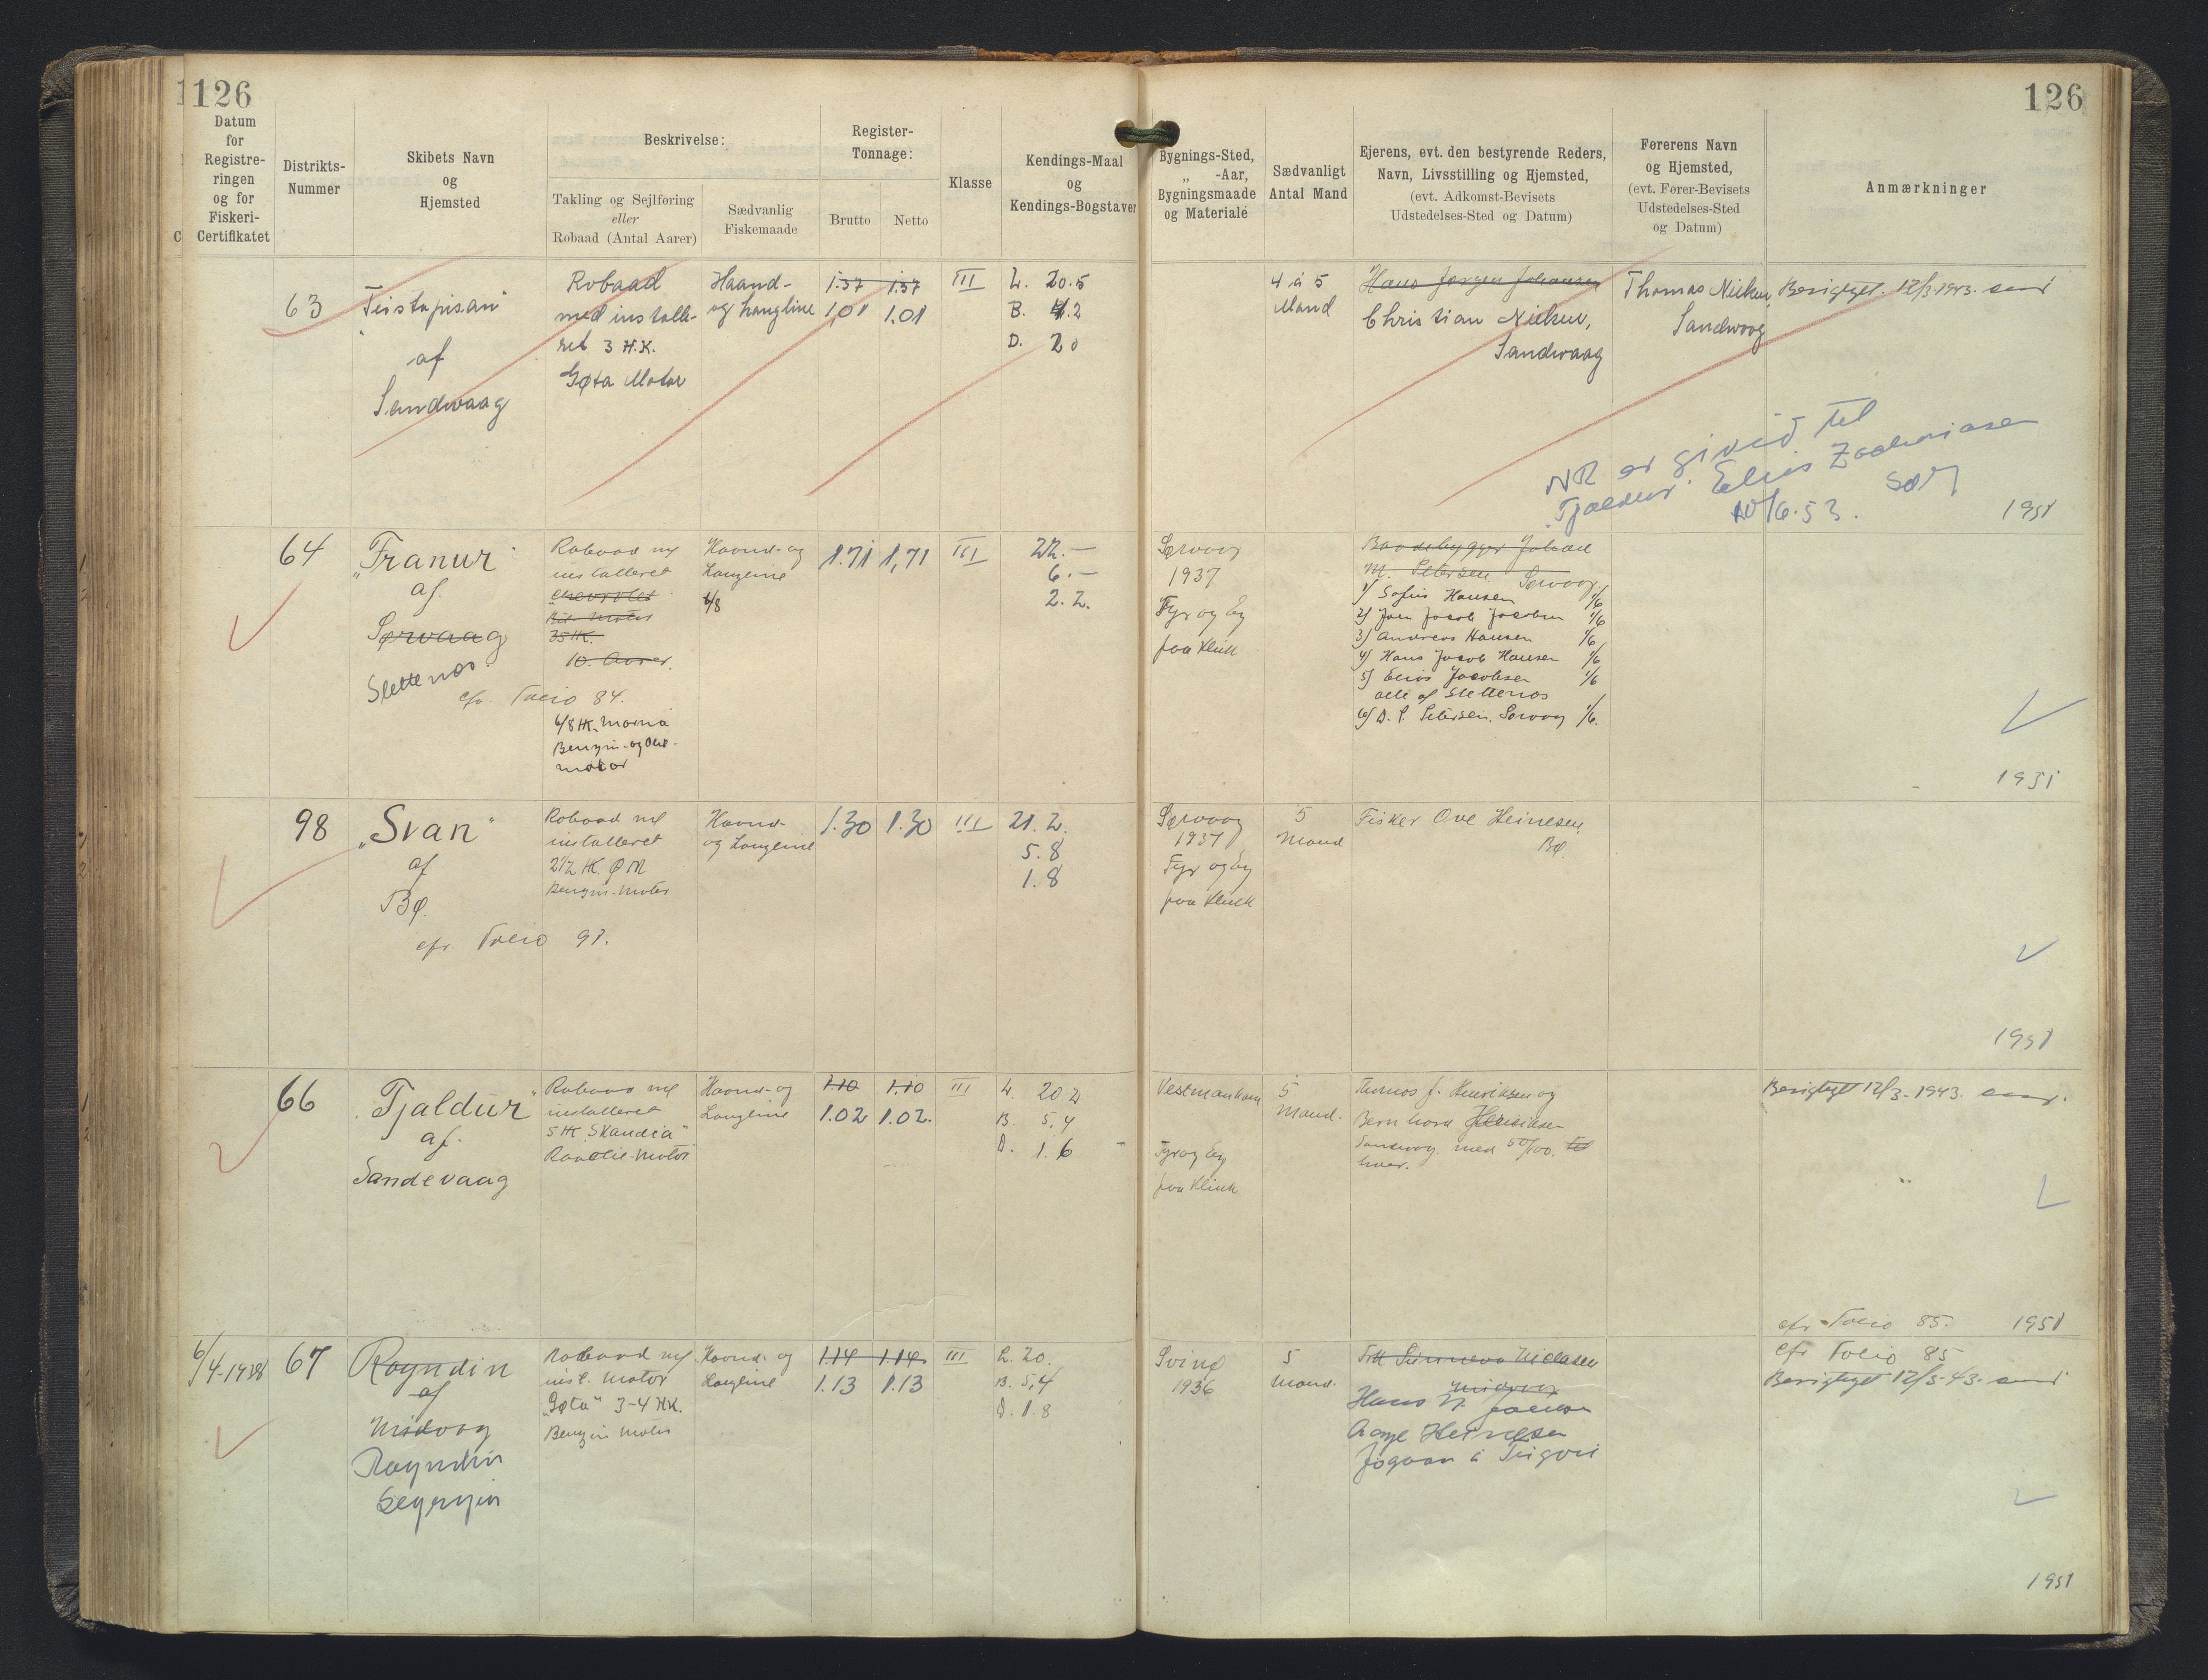 126
126
Datum
for
Registre-
ringen
og for
Fiskeri-
Certifikatet
Distrikts-
Nummer
Skibets Navn
og
Hjemsted
Beskrivelse:
Takling og Sejlføring
eller
Robaad (Antal Aarer)
Sædvanlig
Fiskemaade
Register-
Tonnage:
Brutto
Netto
Klasse
Kendings-Maal
og
Kendings-Bogstaver
Bygnings-Sted,
„ -Aar,
Bygningsmaade
og Materiale
Sædvanligt
Antal Mand
Ejerens, evt. den bestyrende Reders,
Navn, Livsstilling og Hjemsted,
(evt. Adkomst-Bevisets
Udstedelses-Sted og Datum)
Førerens Navn
og Hjemsted,
(evt. Fører-Bevisets
Udstedelses-Sted
og Datum)
Anmærkninger
63
„Teistapisan“
af
Sandvaag
Robaad
med installe-
ret 3 H.K.
Gøta Motor
Haand-
og Langline
1.37 1.37
1,01 1.01
III
L. 20.5
B. 4.2
D. 20
4 á 5
Mand
Hans Jørgen Johansen
Christian Nielsen,
Sandvaag
Thomas Nielsen,
Sandvoog
Berigtyget. 12/3.1943.
NR er givið til
„Tjaldur“ Elias Zachariasen
10/6.53.
1951
64
„Tranur“
af.
Sørvaag
Slettenæs.
cfr. Folio 84.
Robaad m/
installeret
„Chevrolet
Bil Motor
35 HK.
10. Aarer.
6/8 HK. Marna
Benzin- og Olie-
motor
Haand- og
Langline
6/8
1.71 1,71
III
22.–
6.–
2.2.
Sørvaag
1937
Fyr og Eg
paa Klink
Baadebygger Johan
M. Petersen Sørvaag
1) Sofus Hansen 1/6
2) Joen Jacob Jacobsen 1/6
3) Andreas Hansen 1/6
4) Hans Jacob Hansen 1/6
5) Elias Jacobsen 1/6
alle af Slettenæs
6) D. P. Petersen. Sørvaag 1/6.
1951
98
„Svan“
af
Bø.
cfr. Folio 97.
Robaad m/
installeret
2½ HK. Ø M
Benzin-Motor
Haand-
og Langline
1.30 1.30
III
21.2.
5.8
1.8
Sørvaag
1937
Fyr og Eg
paa Klink
5
Mand
Fisker Ove Heinesen
Bø.
1951
66
„Tjaldur“
af.
Sandevaag
Robaad m/
installeret
5 HK „Skandia“
Raaolie-Motor
Haand- og
Langline
1.10 1.10
1.02 1.02.
III
L. 20 2
B. 5,4
D. 1.6
Vestmanhavn
Fyr og Eg
paa Klink
5
Mand.
Thomas J. Henriksen og
Bernhard Henriksen
Sandevaag. med 50/100. til
hver.
Berigtyget 12/3-1943.
cfr Folio 85. 1951
6/4-1938
67
Royndin
af
Midvaag
Royndin
Robaad m/
inst. Motor
„Gøta“ 3-4 HK.
Benzin Motor
Haand- og
Langline
1.14 1.14
1.13 1.13
III
L. 20.
B. 5,4
D. 1.8
Svinø
1936
5
Mand.
Midvaag
Hans
Aage Heinesen
Cfr Folio 85
Berigtyget 12/3-43.
1951